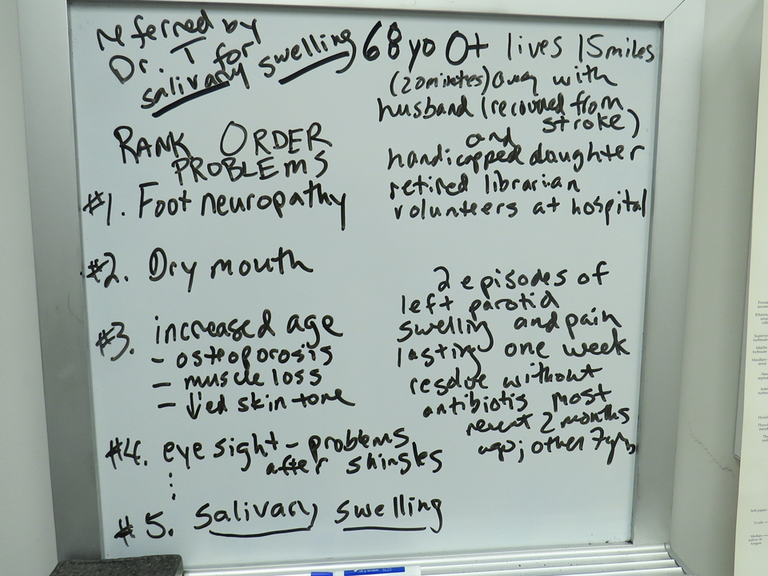 referred by
Dr. T for
salivary swelling
68 yo O+ lives 15 miles
(20 minutes) away with
husband (recovered from
stroke)
and
handicapped daughter
retired librarian
volunteers at hospital
RANK ORDER
PROBLEMS
#1. Foot neuropathy
#2. Dry mouth
#3. increased age
- osteoporosis
- muscle loss
- ↓'ed skin tone
#4. eye sight - problems
after shingles
#5. salivary swelling
2 episodes of
left parotid
swelling and pain
lasting one week
resolve without
antibiotis most
recent 2 months
ago; other 7 yrs